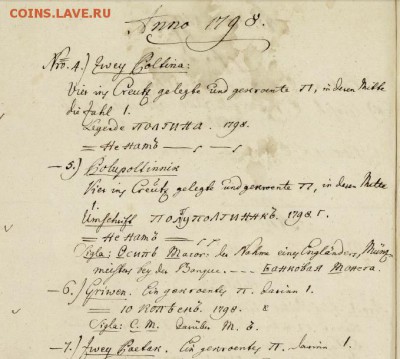 COINS.LAVE.RU
Anno 1798.
Nro. 4.) Zwey Poltina:
Vier ins Creutz gelegte und gekroente П, in deren Mitte
die Zahl 1.
Legende ПОЛТИНА. 1798.
= НЕ НАМЪ
— 5.) Polupoltinnik
Vier ins Creutz gelegte und gekroente П, in deren Mitte
1.
Umschrift ПОЛУПОЛТИННИКЪ. 1798 Г.
= НЕ НАМЪ
der Nahme eines Engländers, Münz-
meisters bey der БАНКОВАЯ МОНЕТА.
— 6.) Griwen. Ein gekroentes П. Darinn 1.
= 10 КОПѢЕКЪ. 1798.
Sigla: С. М. Darüber М. Б.
— 7.) Zwey Paetak. Ein gekroentes П. Darinn 1.